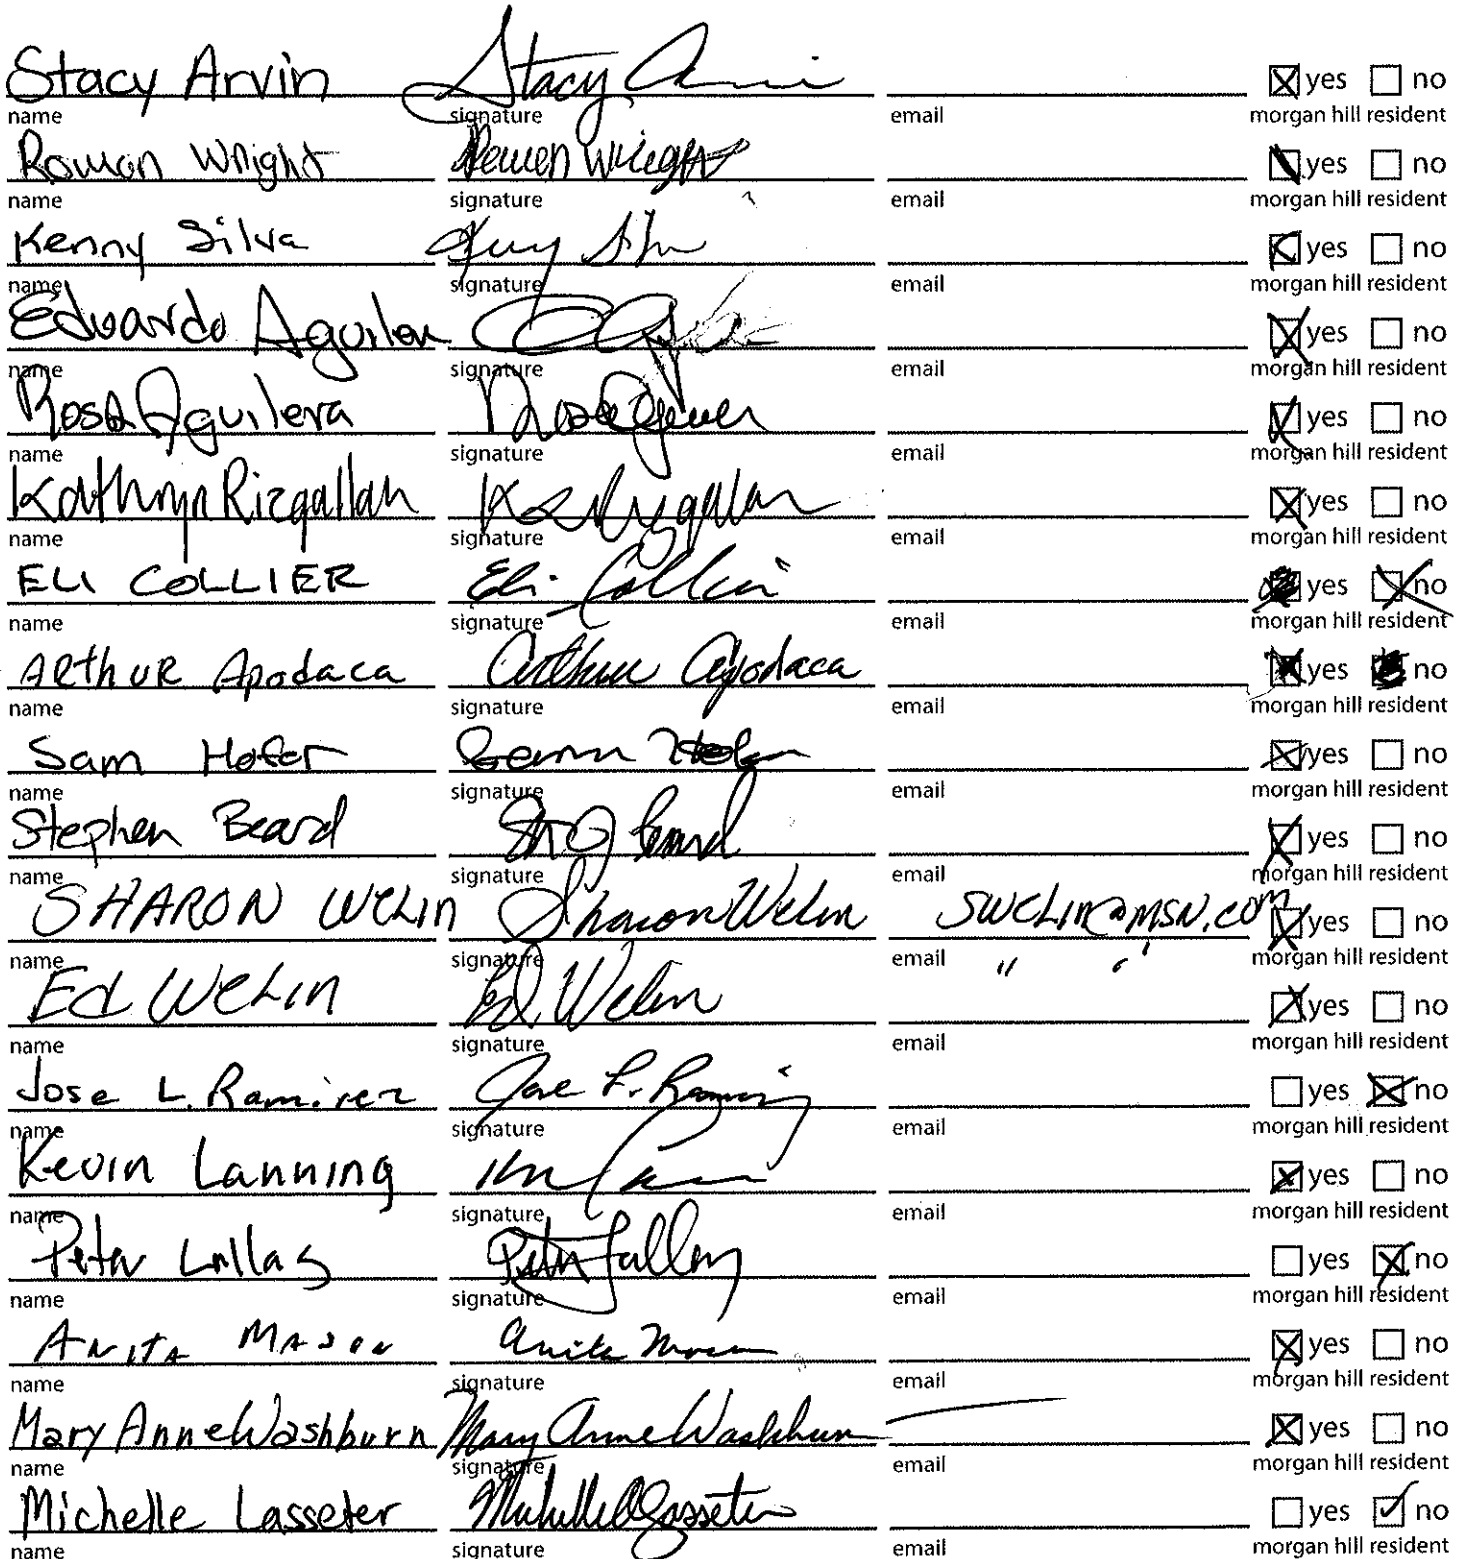 Stacy Arvin Stacy Arvin yes no
name signature email morgan hill resident
Roman Wright Roman Wright yes no
name signature email morgan hill resident
Kenny Silva yes no
name signature email morgan hill resident
Eduardo Aguilera yes no
name signature email morgan hill resident
Rosa Aguilera Rosa yes no
name signature email morgan hill resident
Kathryn Rizgallah yes no
name signature email morgan hill resident
ELI COLLIER Eli Collier yes no
name signature email morgan hill resident
ARthUR Apodaca Arthur Apodaca yes no
name signature email morgan hill resident
Sam Hofer yes no
name signature email morgan hill resident
Stephen Beard Beard yes no
name signature email morgan hill resident
SHARON WELIN Sharon Welin SWELIN@MSN.COM yes no
name signature email " " morgan hill resident
Ed WELIN Ed Welin yes no
name signature email morgan hill resident
Jose L. Ramirez Jose L. Ramirez yes no
name signature email morgan hill resident
Kevin Lanning yes no
name signature email morgan hill resident
Peter Peter yes no
name signature email morgan hill resident
ANITA MASON Anita Mason yes no
name signature email morgan hill resident
Mary Anne Washburn Mary Anne Washburn yes no
name signature email morgan hill resident
Michelle Lasseter Michelle Lasseter yes no
name signature email morgan hill resident